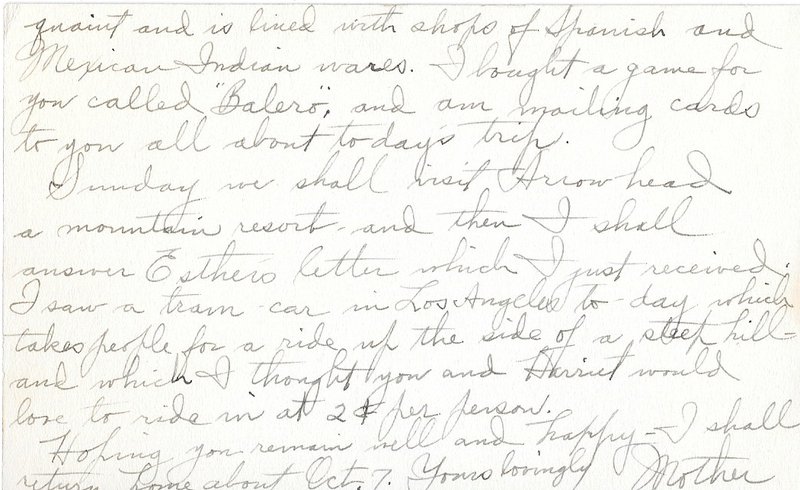 quaint and is lined with shops of Spanish and
Mexican Indian wares. I bought a game for
you called "Balero", and am mailing cards
to you all about today's trip.
Sunday we shall visit Arrowhead
a mountain resort - and then I shall
answer Esther's letter which I just received.
I saw a tram-car in Los Angeles to-day which
takes people for a ride up the side of a steep hill -
and which I thought you and Harriet would
love to ride in at 2¢ per person.
Hoping you remain well and happy - I shall
return home about Oct. 7. Yours lovingly Mother